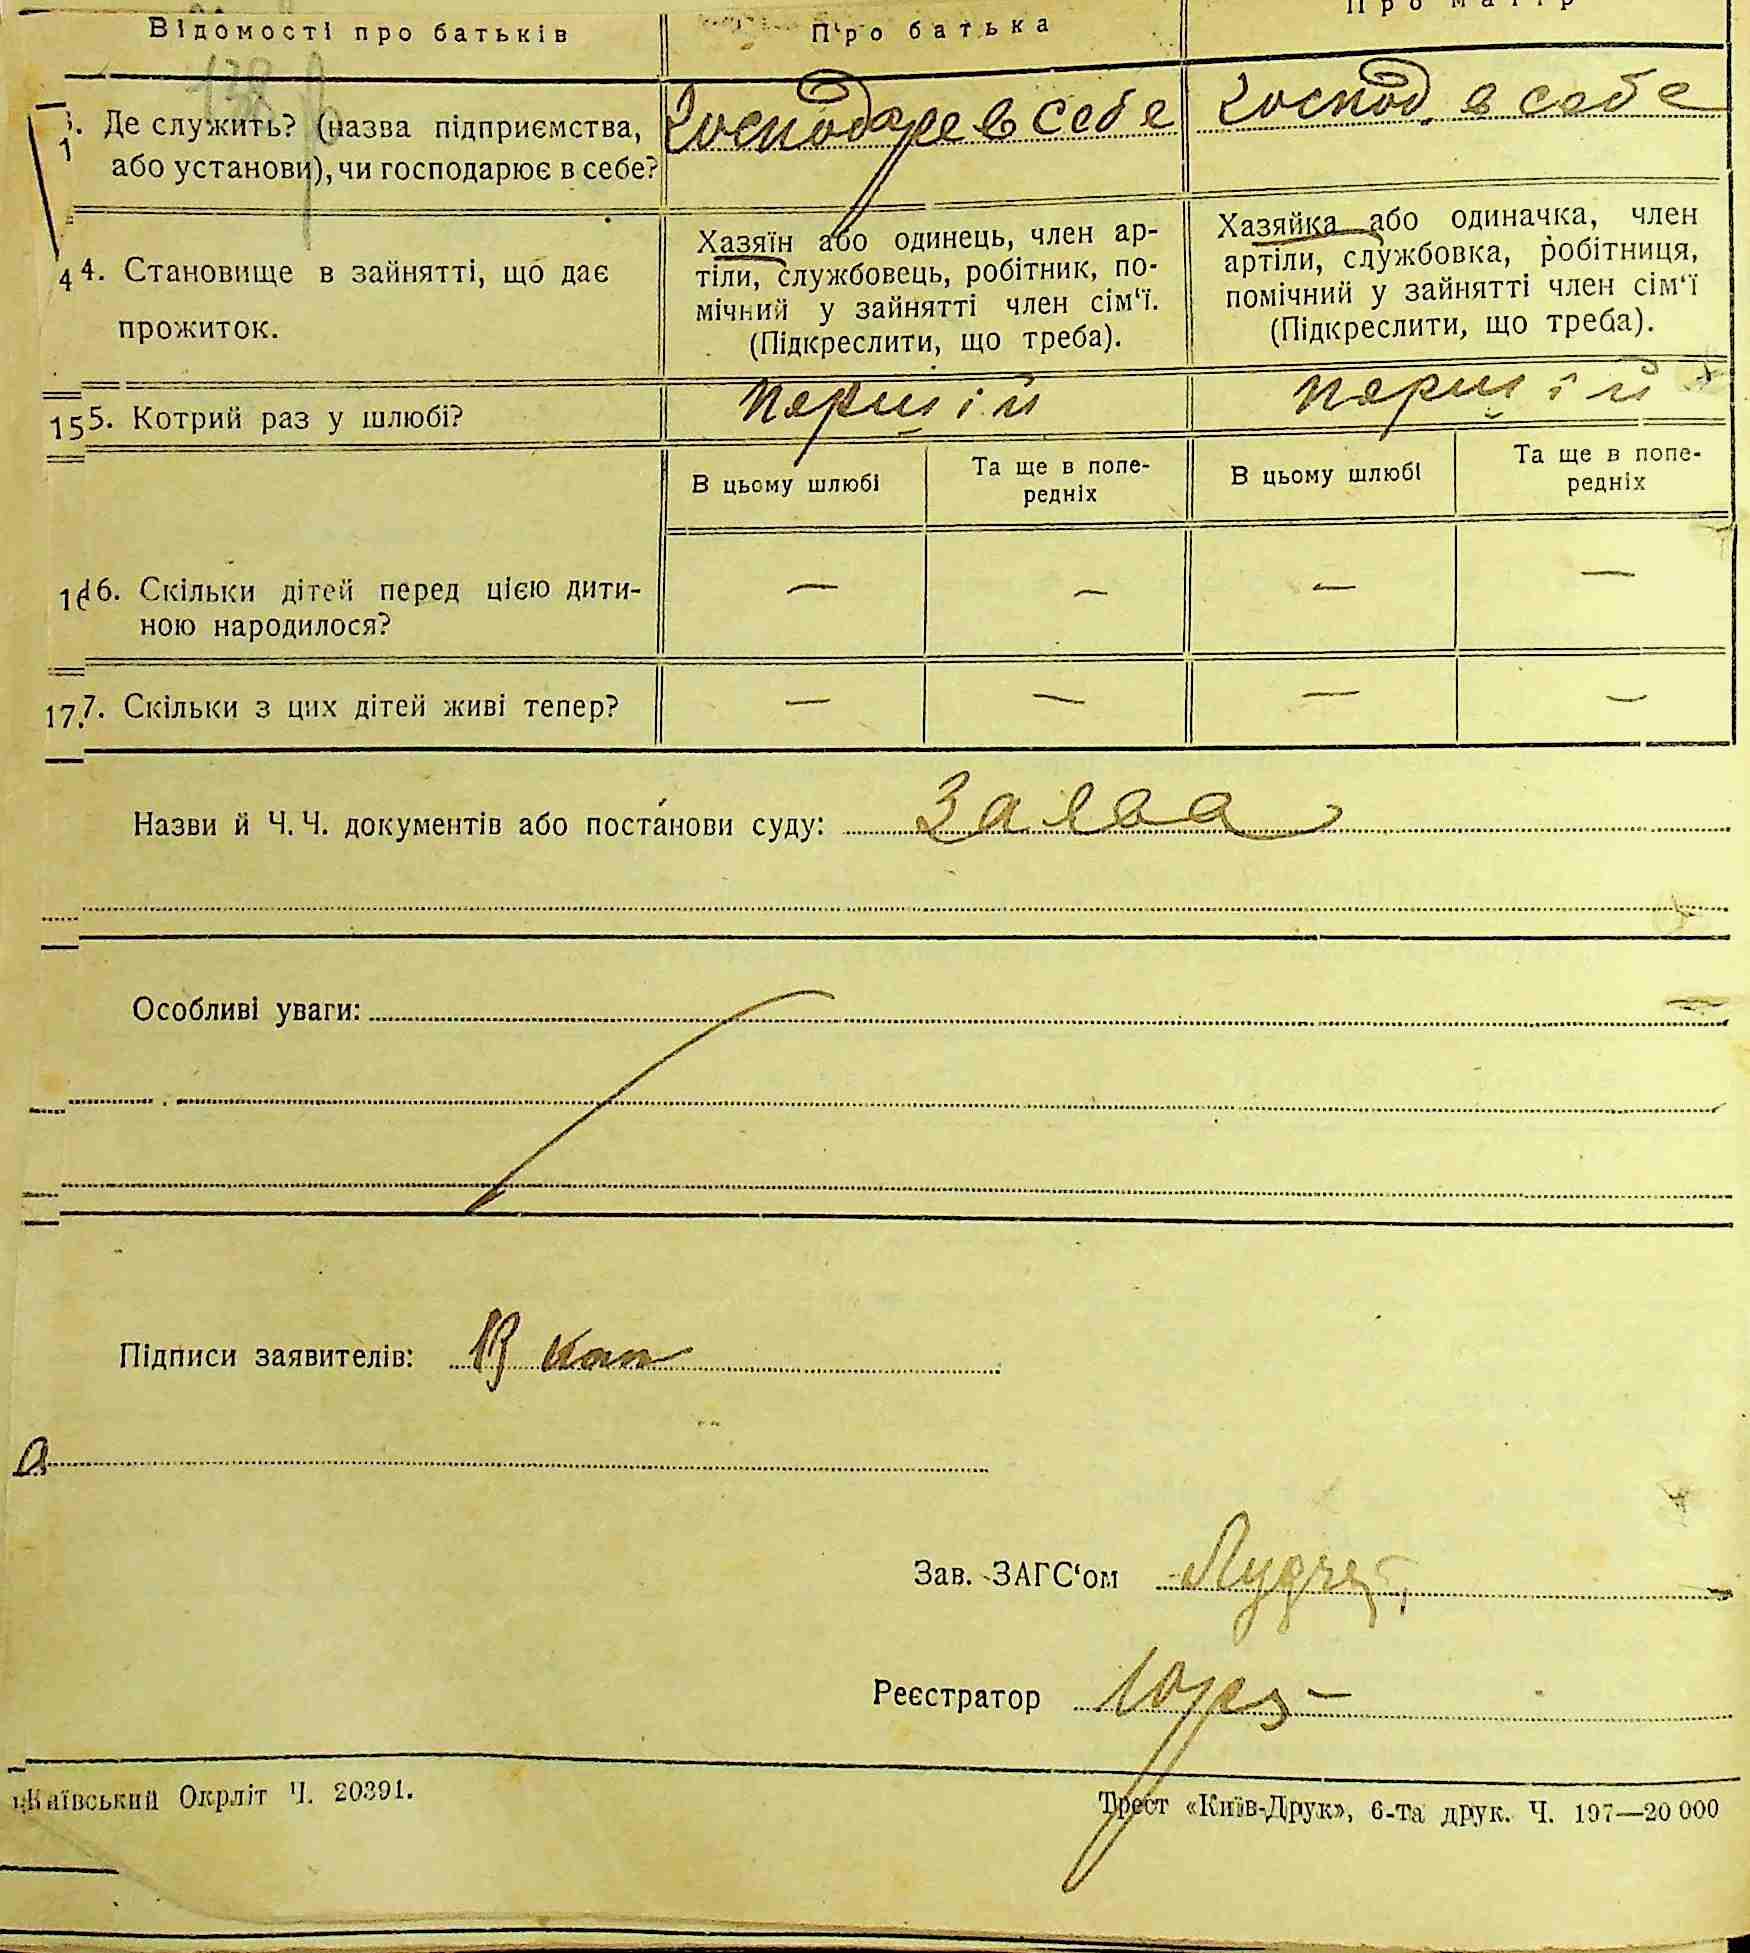 Відомості про батьків
Про батька
138
3. Де служить? (назва підприємства,
або установи), чи господарює в себе?
Господарює в себе
Господ. в себе
4. Становище в зайнятті, що дає
прожиток.
Хазяїн або одинець, член ар-
тіли, службовець, робітник, по-
мічний у зайнятті член сім‘ї.
(Підкреслити, що треба).
Хазяйка або одиначка, член
артіли, службовка, робітниця,
помічний у зайнятті член сім‘ї
(Підкреслити, що треба).
15 5. Котрий раз у шлюбі?
перший
перший
В цьому шлюбі
Та ще в попе-
редніх
В цьому шлюбі
Та ще в попе-
редніх
16. Скільки дітей перед цією дити-
ною народилося?
— — — —
17. 7. Скільки з цих дітей живі тепер?
— — — —
Назви й Ч. Ч. документів або постанови суду: Заява
Особливі уваги:
Підписи заявителів:
Зав. ЗАГС‘ом
Реєстратор
Київський Окрліт Ч. 20391.
Трест «Київ-Друк», 6-та друк. Ч. 197—20 000